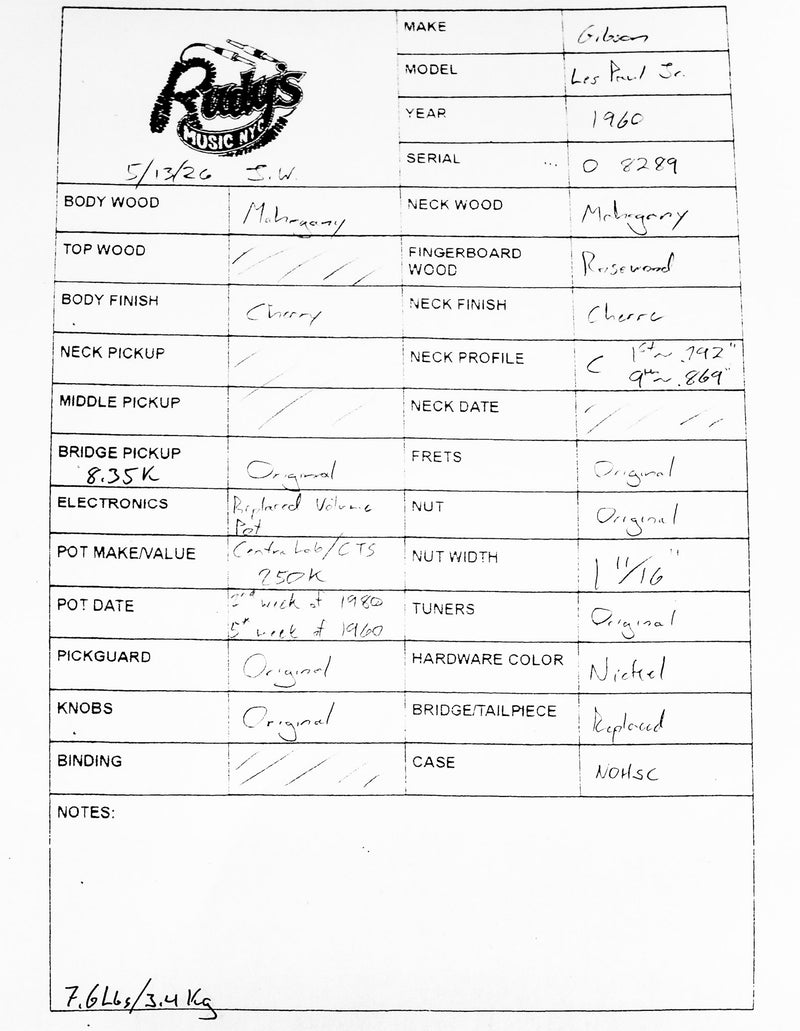 Rudy's
MUSIC NYC
5/13/26 J.W.
MAKE Gibson
MODEL Les Paul Jr.
YEAR 1960
SERIAL ... 0 8289
BODY WOOD Mahogany NECK WOOD Mahogany
TOP WOOD FINGERBOARD
WOOD Rosewood
BODY FINISH Cherry NECK FINISH Cherry
NECK PICKUP NECK PROFILE C 1st ~ .792"
9th ~ .869"
MIDDLE PICKUP NECK DATE
BRIDGE PICKUP Original FRETS Original
8.35K
ELECTRONICS Replaced Volume NUT Original
Pot
POT MAKE/VALUE Centralab/CTS NUT WIDTH 1 11/16"
250K
POT DATE week of 1980 TUNERS Original
5th week of 1960
PICKGUARD Original HARDWARE COLOR Nickel
KNOBS Original BRIDGE/TAILPIECE Replaced
BINDING CASE NOHSC
NOTES:
7.6 Lbs/3.4 Kg